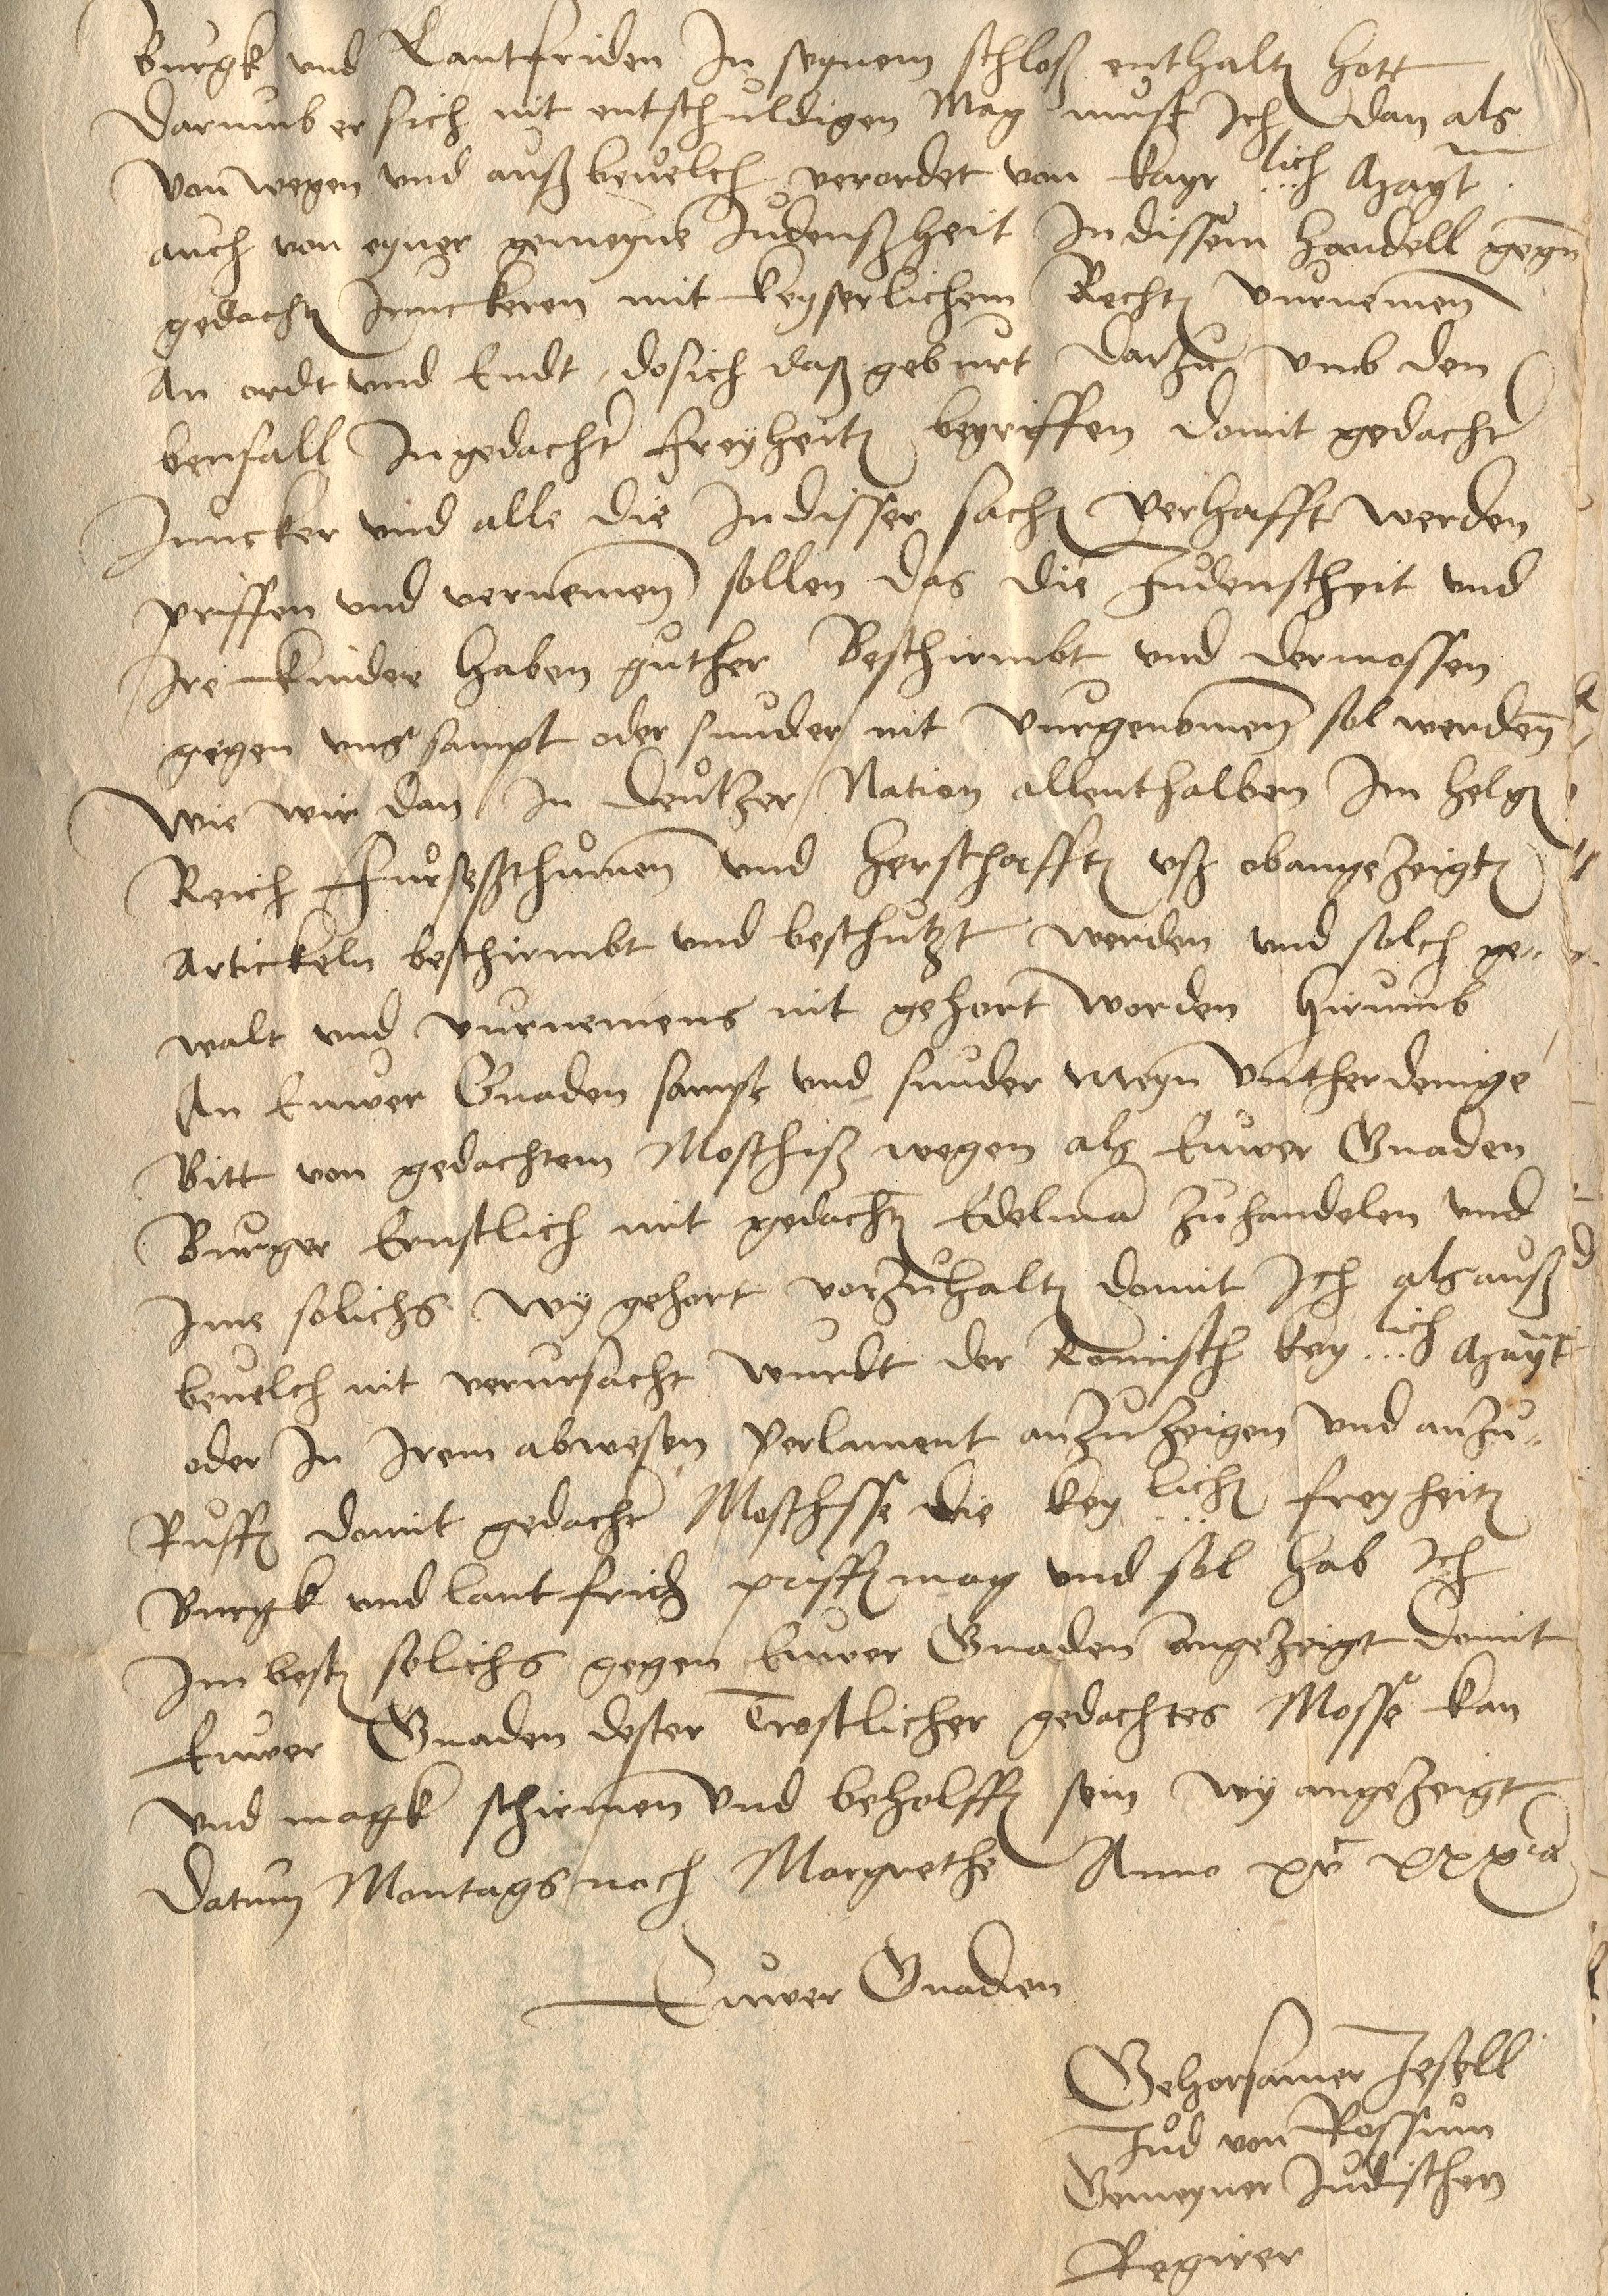 Burgk vnd Lantfriden In seynem schloß enthalt hott
Darumb er sich nit entschuldigen Mag must Ich dan als
Von wegen vnd auß beuelch verordet von kayr lich Mayt
auch von eyner gemeyne Judenßheit In dissem handell gegn
gedacht Junckeren mit keyserlichem Recht vurnemen
An ordt vnd Endt, do sich daß geburt Darzu vmb den
benfall In gedachter freyheit begriffen domit gedachter
Juncker vnd alle die In disser sach verhafft werden
priffen vnd vernemen sollen das die Judenscheit vnd
Ire kinder haben guther Beschirmbt vnd dermossen
gegen vns sampt oder sunder nit vurgenomen sol werden
Wie wir dan In deutzer Nation allenthalben Im helg
Reich Fursteßthumen vnd herschafft vß obangezeigt
Artickeln beschirmbt vnd beschutzt werden vnd solch ge„
walt vnd vurnemens nit gehort worden hirumb
An Euwer Gnaden sampt vnd sunder Meyn vntherdenige
Bitt von gedachtem Moschiß wegen als Euwer Gnaden
Burger Ernstlich mit gedacht Edelma zuhandelen vnd
Ime solichs wy gehort vorzuhalt domit Ich als auß
beuelch nit verursacht wurdt der Romisch key lich Mayt
oder In Irem abwesen Perlament anzuzeigen vnd anzu„
Ruff domit gedacht Moschsse die key lich freyheit
Burgk vnd lantfrid priff mag vnd sol hab Ich
Im best solichs gegen Euwer Gnaden angezeigt domit
Euwer Gnaden dester Trostlicher gedachtes Mosse kan
vnd magk schirmen vnd beholff sein wy angezeigt
Datum Montags noch Margrethe Anno xvc xxxia
Euwer Gnaden
Gehorsamer Jesell
Jud von Rossum
Gemeyner Judischen
Regirer